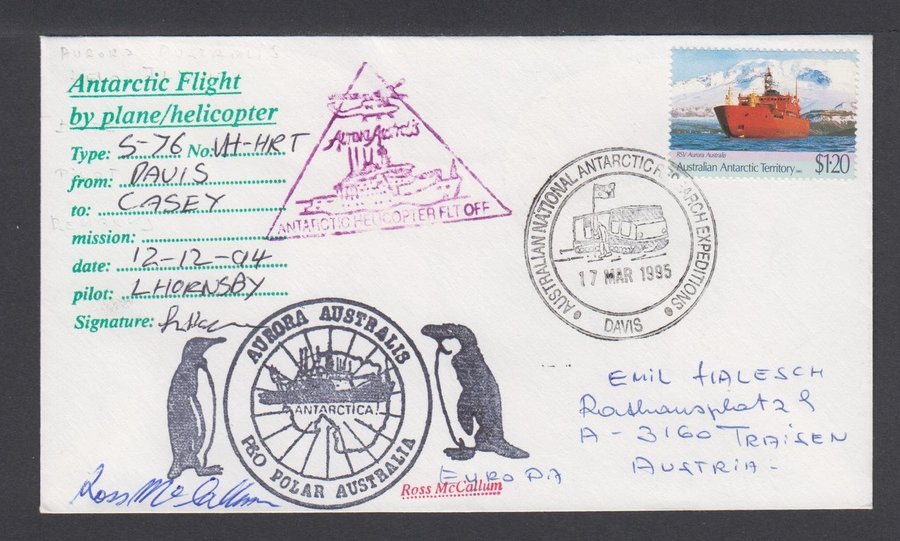 Antarctic Flight
by plane/helicopter
Type: S-76 No: VH-HRT
from: DAVIS
to: CASEY
mission:
date: 12-12-94
pilot: L HORNSBY
Signature:
AURORA AUSTRALIS
ANTARCTIC HELICOPTER FLT OFF
RSV Aurora Australis
Australian Antarctic Territory $1.20
AUSTRALIAN NATIONAL ANTARCTIC RESEARCH EXPEDITIONS
17 MAR 1995
DAVIS
AURORA AUSTRALIS
ANTARCTICA
P&O POLAR AUSTRALIA
Ross McCallum
Ross McCallum
EMIL HALESCH
Rathausplatz 9
A - 3160 TRAISEN
AUSTRIA -
EUROPA